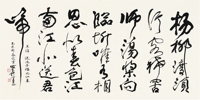 楊柳渡頭
行客稀罟
師蕩槳向
臨圻唯有相
思似春色江
南江北送君
歸